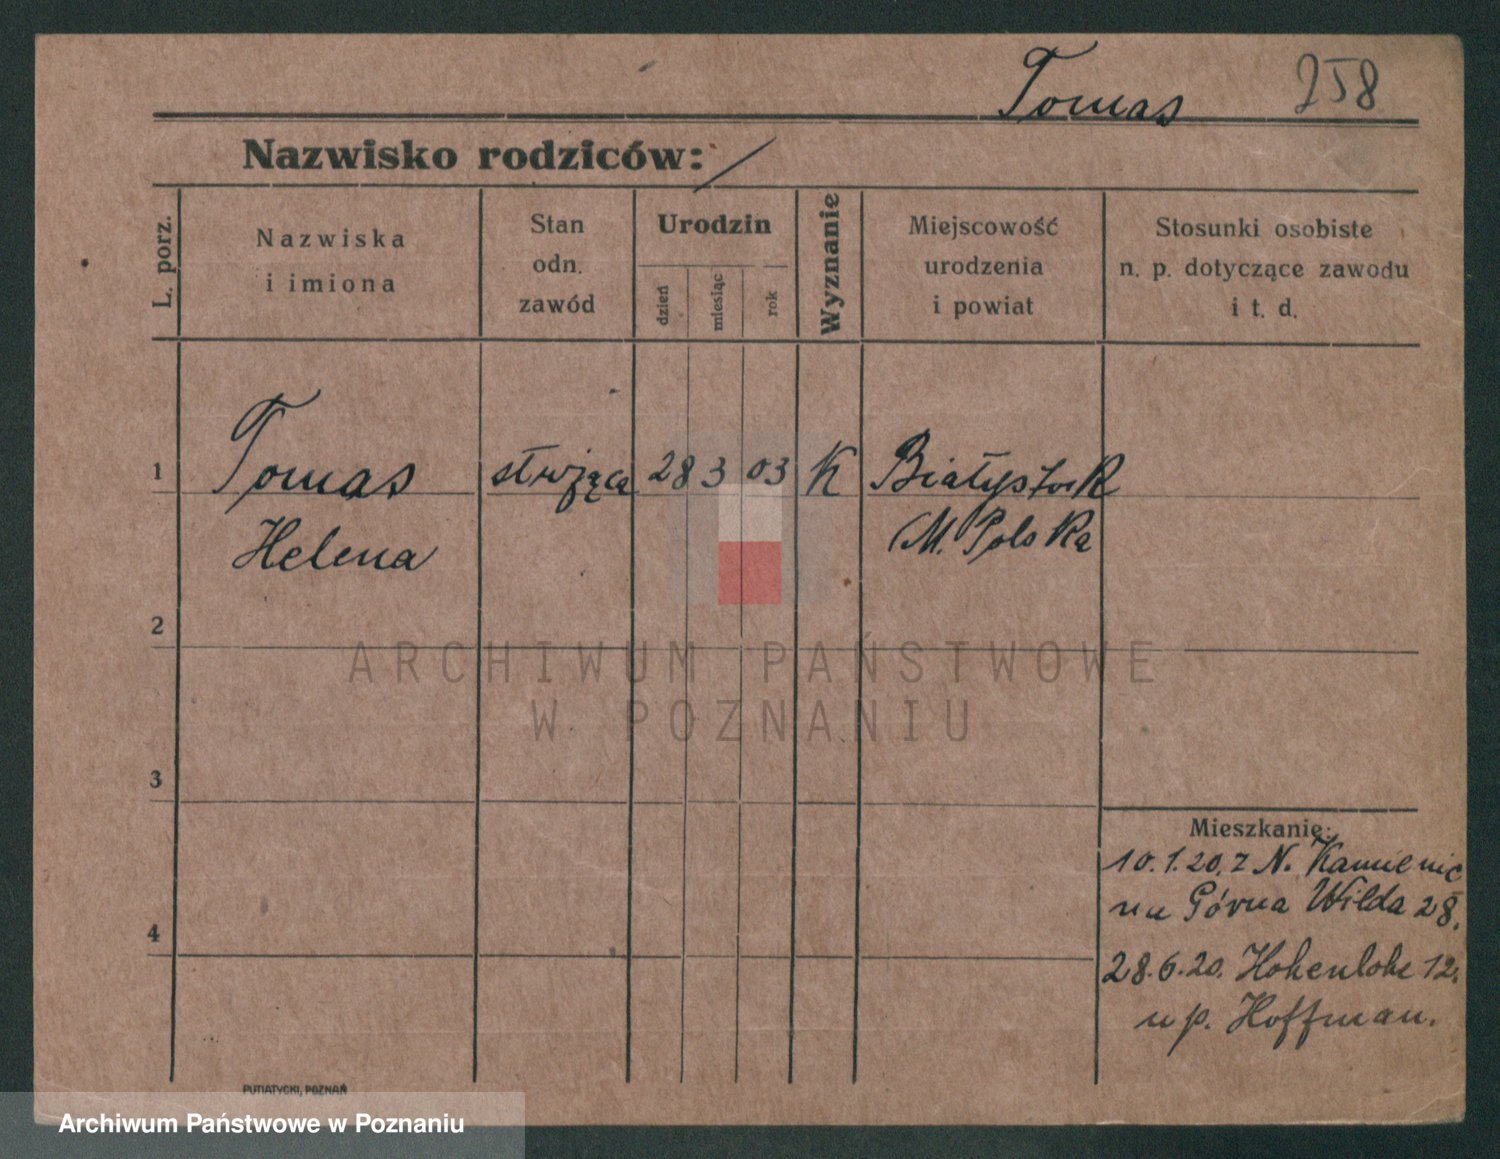 Tomas 258
Nazwisko rodziców: /
L. porz.
Nazwiska
i imiona
Stan
odn.
zawód
Urodzin
dzień
miesiąc
rok
Wyznanie
Miejscowość
urodzenia
i powiat
Stosunki osobiste
n. p. dotyczące zawodu
i t. d.
1 Tomas służąca 28 3 03 K Białystok
Helena M. Polska
2
ARCHIWUM PAŃSTWOWE
W POZNANIU
3
Mieszkanie:
10.1.20. z N. Kamienic
na Górna Wilda 28.
4
28.6.20. Hohenlohe 12.
u p. Hoffman.
PUTIATYCKI, POZNAŃ
Archiwum Państwowe w Poznaniu